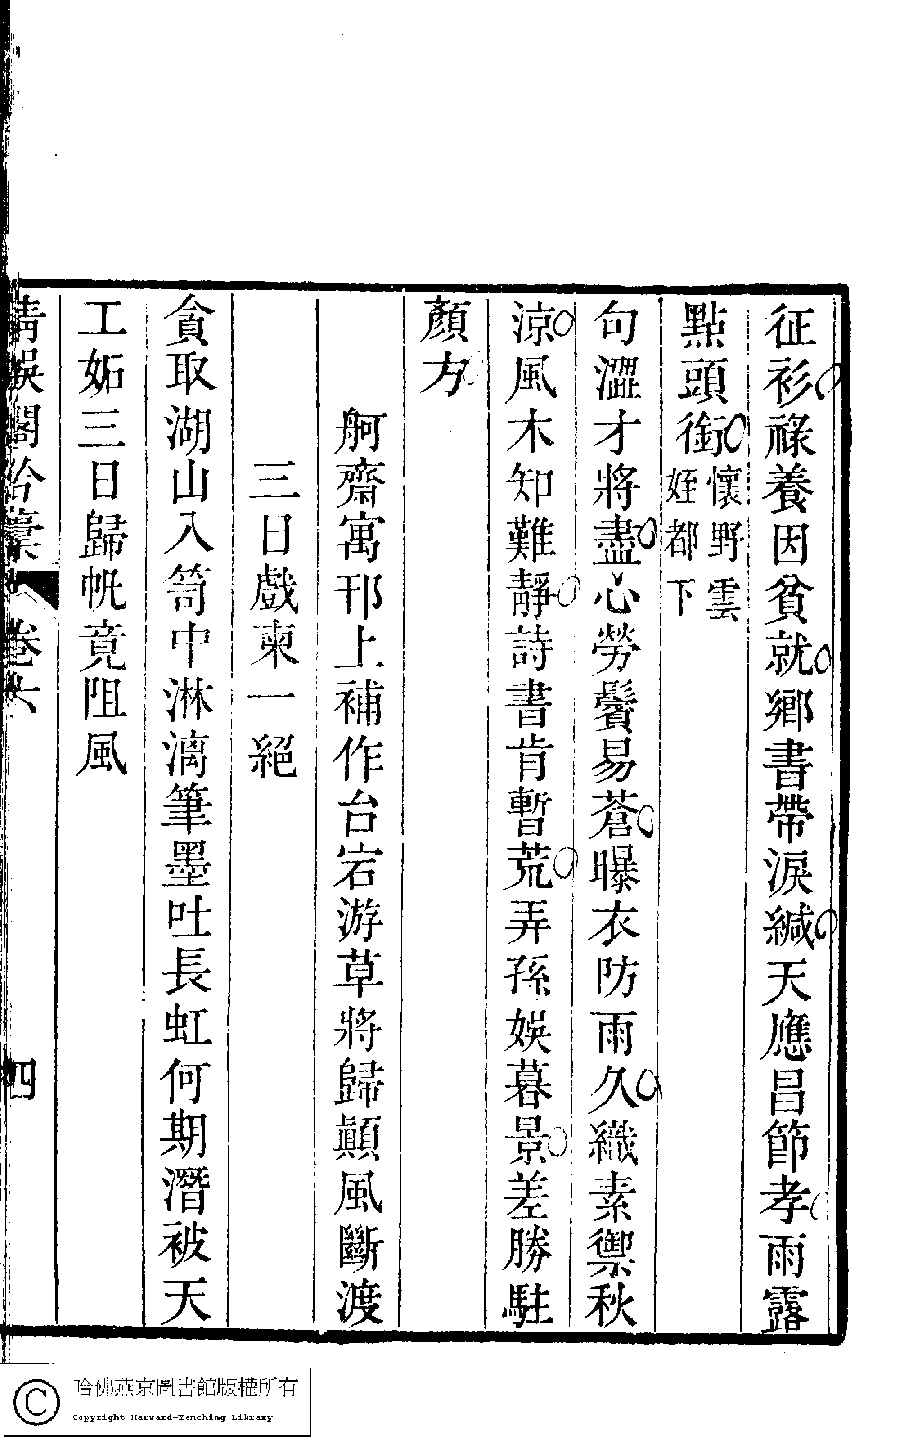 征衫祿養因貧就鄉書帶淚緘天應昌節孝雨露
點頭銜懷野雲姪都下
句澀才將盡心勞鬢易蒼曝衣防雨久織素禦秋
涼風木知難靜詩書肯暫荒弄孫娛暮景差勝駐
顏方
舸齋寓邗上補作台宕游草將歸顚風斷渡
三日戲柬一絕
貪取湖山入笥中淋漓筆墨吐長虹何期潛被天
工妬三日歸帆竟阻風
清娛閣吟藁 卷六 四
哈佛燕京圖書館版權所有
Copyright Harvard-Yenching Library